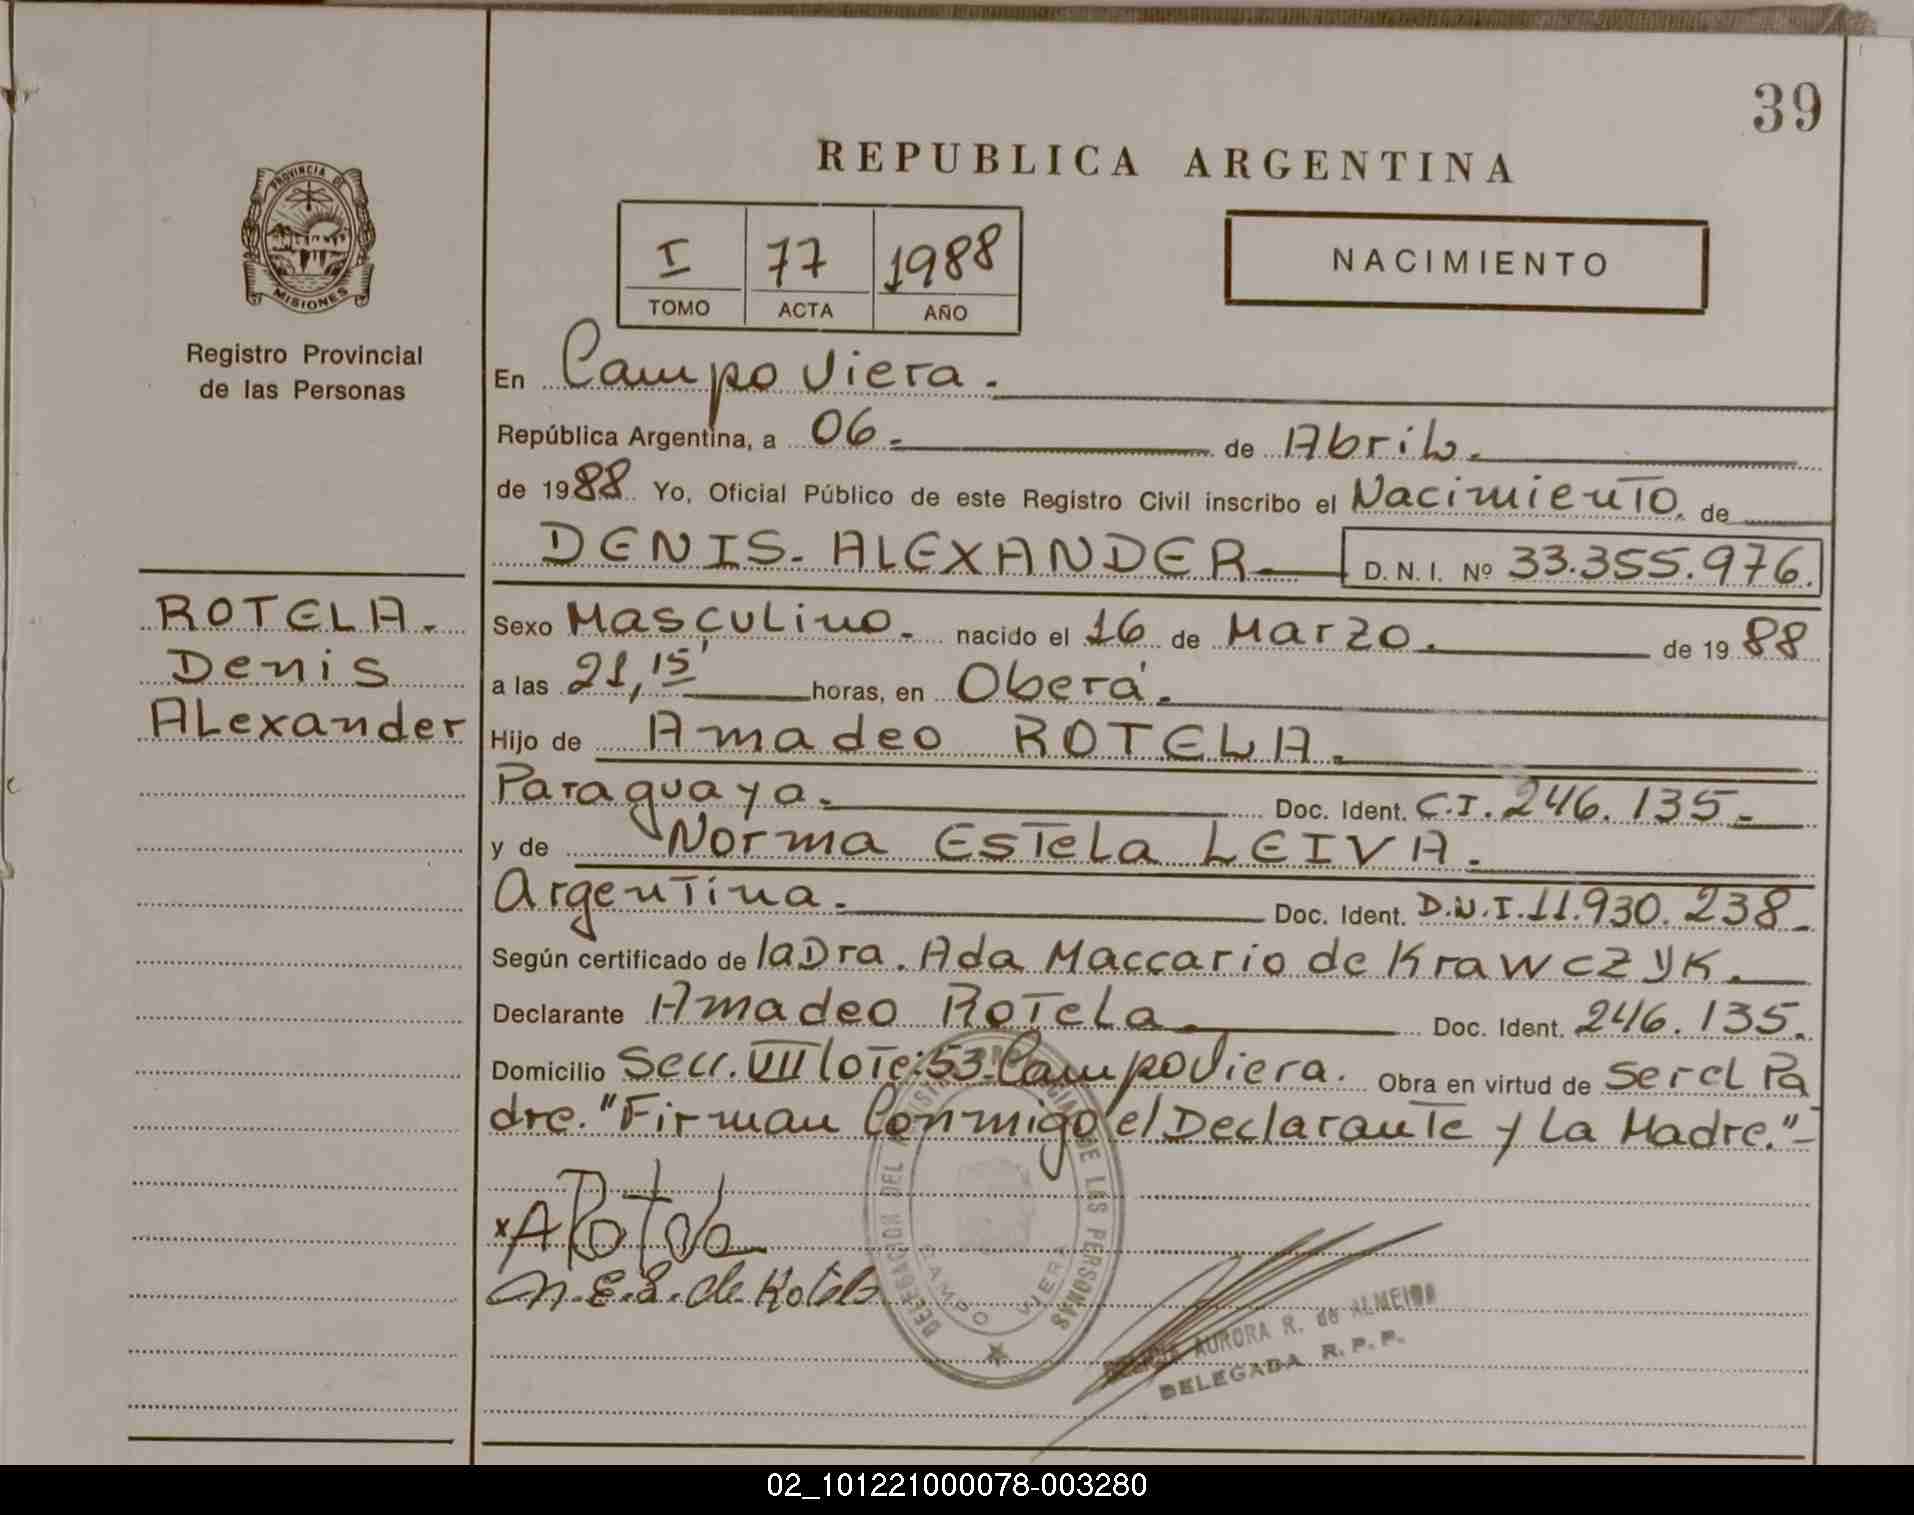 39
REPUBLICA ARGENTINA
PROVINCIA DE
MISIONES
Registro Provincial
de las Personas
I 77 1988
TOMO ACTA AÑO
NACIMIENTO
En Campo Viera.
República Argentina, a 06. de Abril.
de 1988 Yo, Oficial Público de este Registro Civil inscribo el Nacimiento. de
DENIS. ALEXANDER D.N.I. Nº 33.355.976.
ROTELA.
Denis
Alexander
Sexo Masculino. nacido el 16 de Marzo. de 1988
a las 21,15' horas, en Oberá.
Hijo de Amadeo ROTELA.
Paraguaya. Doc. Ident. C.I. 246.135-
y de Norma Estela LEIVA.
Argentina. Doc. Ident. D.N.I. 11.930.238-
Según certificado de la Dra. Ada Maccario de Krawczyk.
Declarante Amadeo Rotela. Doc. Ident. 246.135.
Domicilio Secc. VII lote: 53-Campo Viera. Obra en virtud de Ser el Pa
dre. "Firman Conmigo el Declarante y La Madre."-
x A Rotela
N.E.L. de Rotela
DELEGACION DEL DE LAS PERSONAS
CAMPO VIERA
AURORA R. de ALMEIDA
DELEGADA R. P. P.
02_101221000078-003280